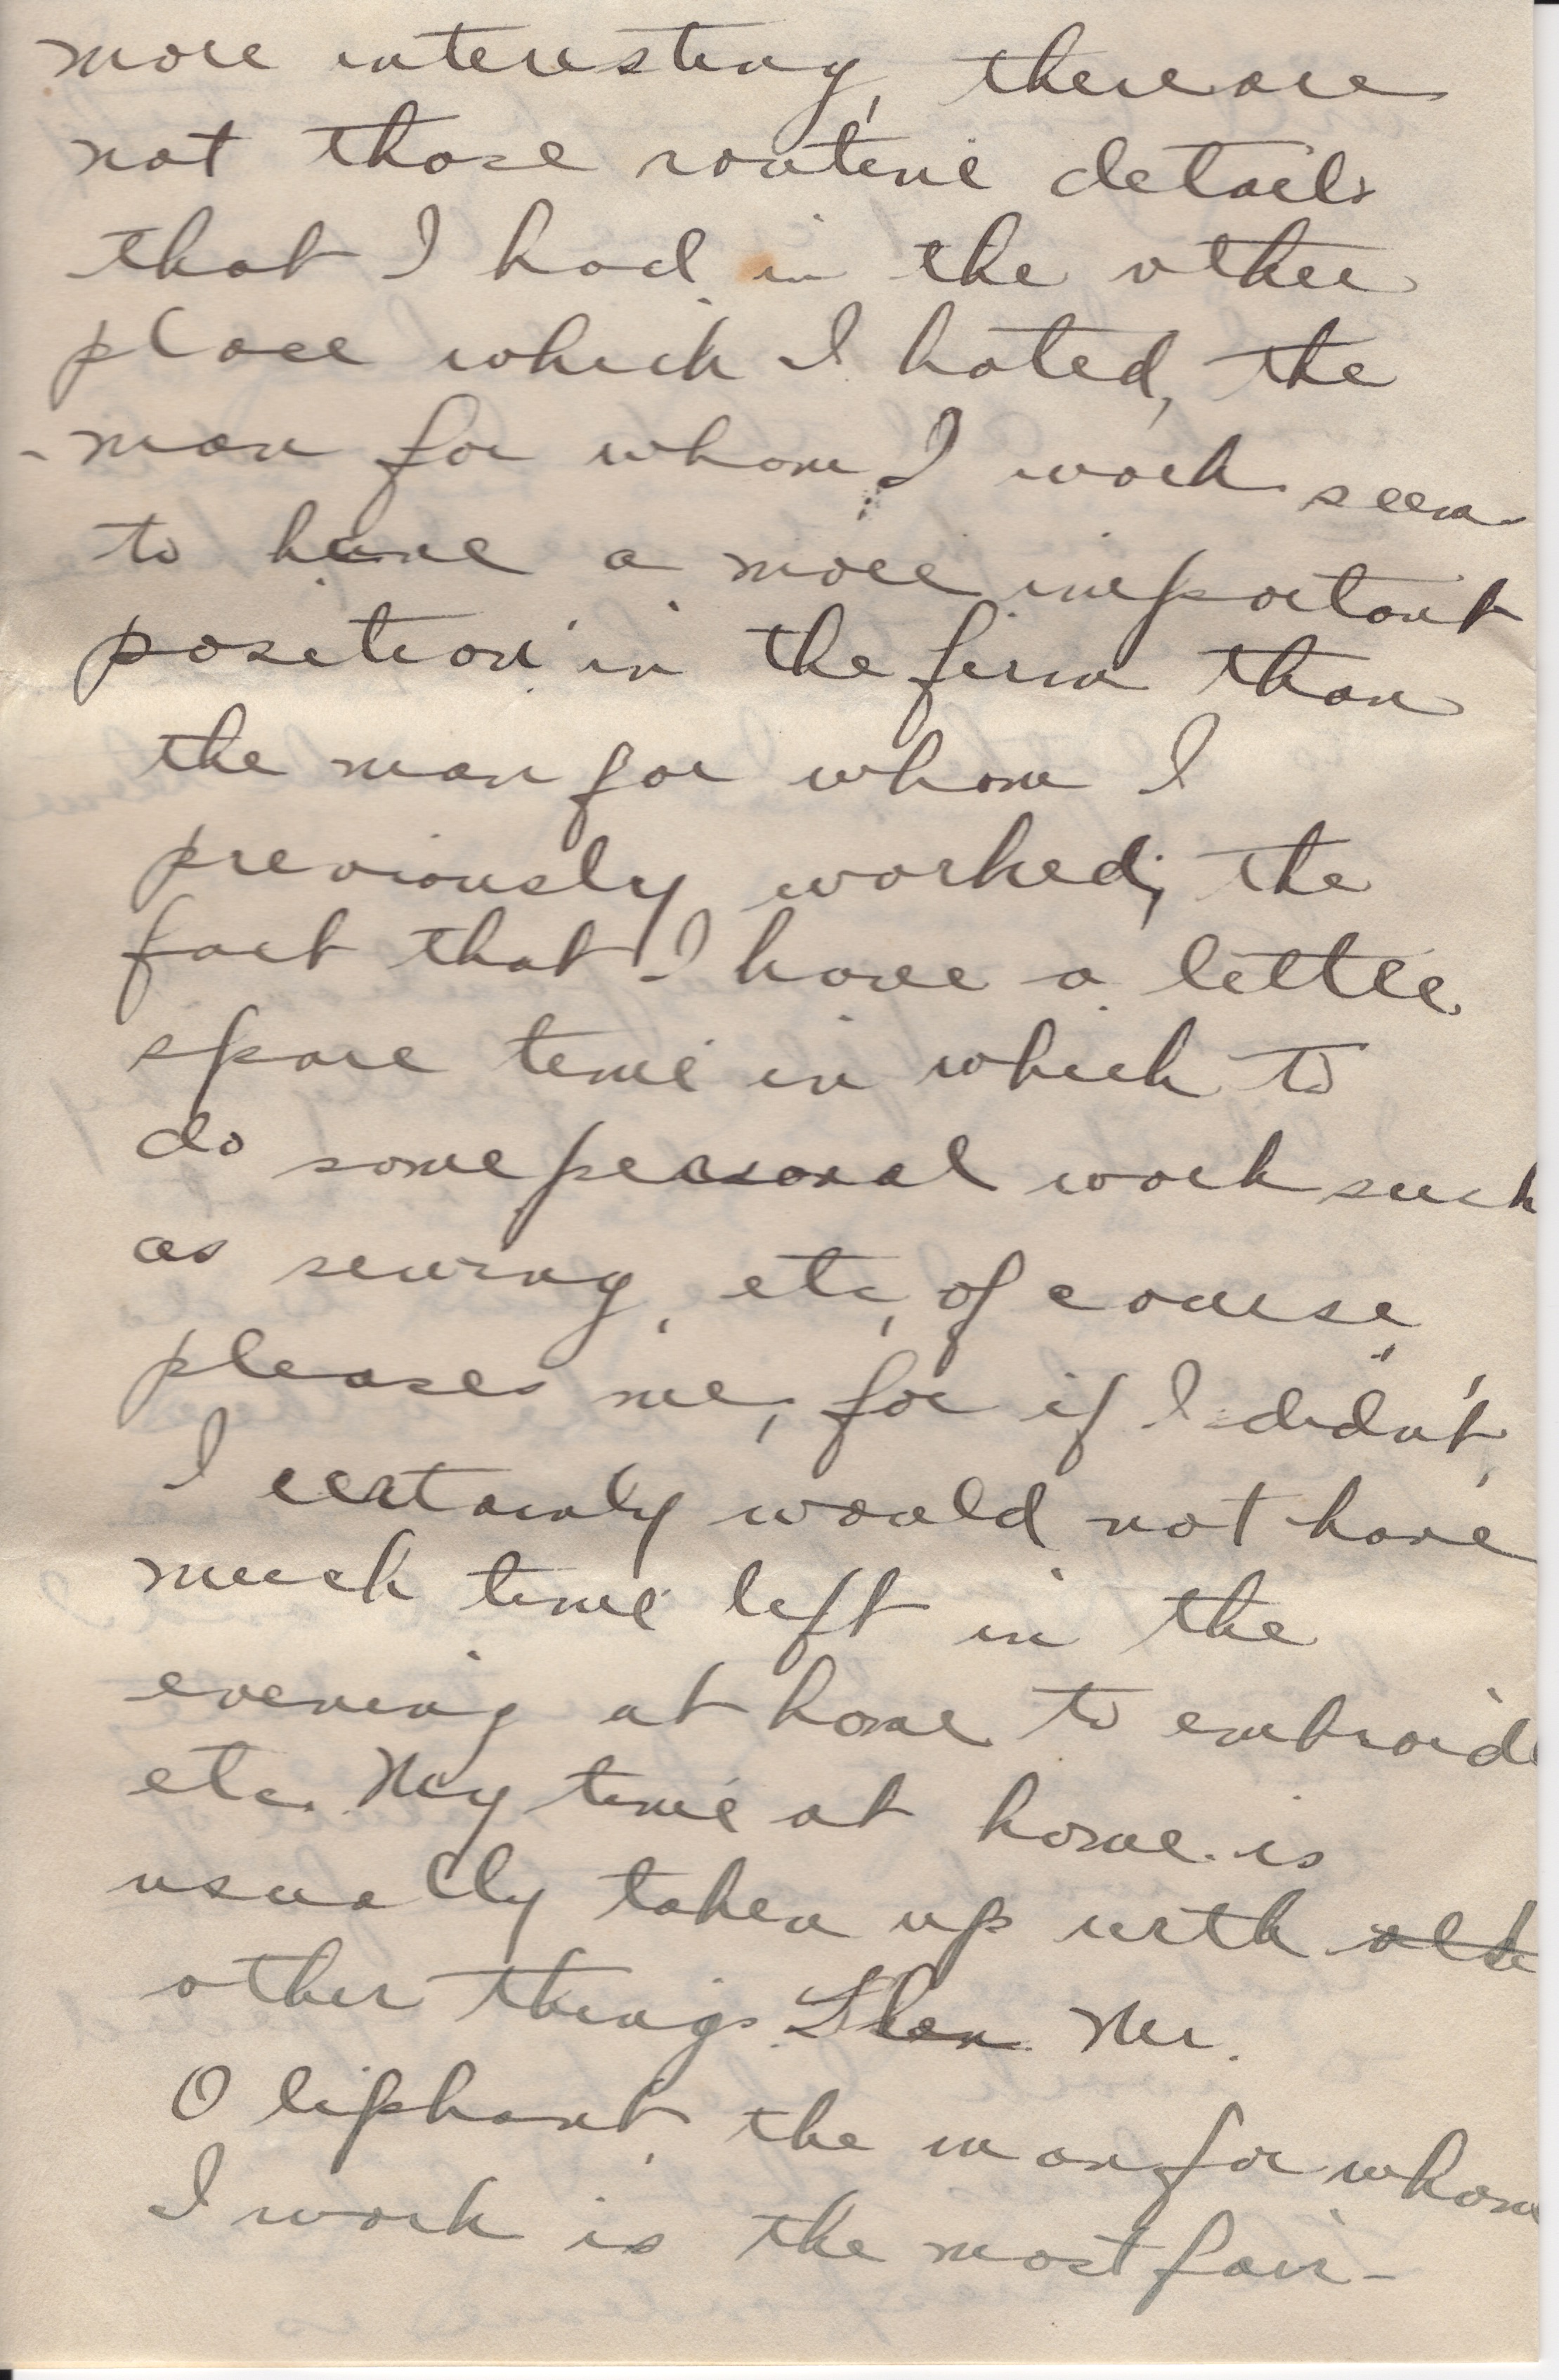 more interesting, there are
not those routine details
that I had in the other
place which I hated, the
man for whom I work seems
to have a more important
position in the firm than
the man for whom I
previously worked; the
fact that I have a little
spare time in which to
do some personal work such
as sewing, etc, of course,
pleases me, for if I didn't,
I certainly would not have
much time left in the
evening at home to embroide
etc. My time at home is
usually taken up with
other things. Then Mr.
Oliphant, the man for whom
I work is the most fair-